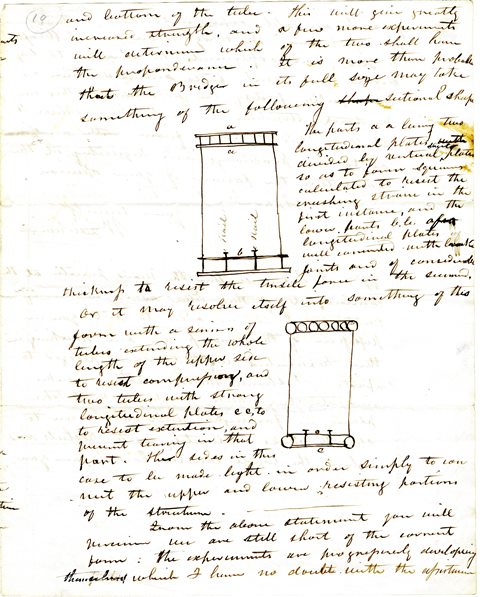 19
and bottom of the tube. This will give greatly
increased strength, and a few more experiments
will determine which of the two shall have
the preponderance. It is more than probable
that the Bridge in its full size may take
something of the following shape sectional shape
a
a
Rail
Rail
b
The parts a a being two
longitudinal plates
divided by vertical plates
so as to form squares
calculated to resist the
crushing strain in the
first instance, and the
lower parts b.b. also
longitudinal plates
well connected with
joints and of considerable
thickness to resist the tensile force in the second.
Or it may resolve itself into something of this
form with a series of
tubes extending the whole
length of the upper side
to resist compression, and
two tubes with strong
longitudinal plates c c, to
to resist extension, and
prevent tearing in that
part. The sides in this
case to be made light in order simply to con
nect the upper and lower resisting portions
of the structure.
c
c
From the above statement you will
perceive we are still short of the correct
form: the experiments are progressively developing
themselves which I have no doubt with the